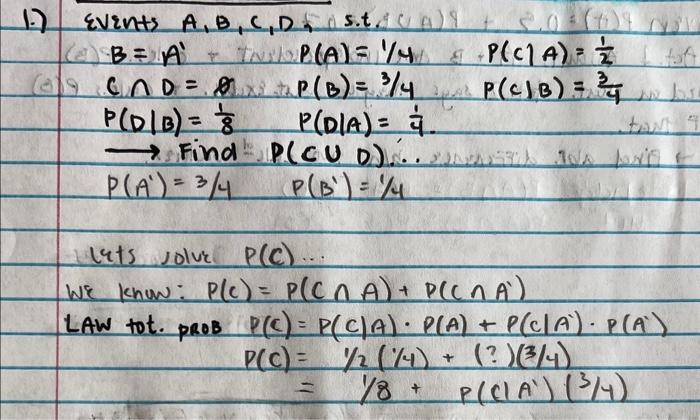 1.) Events A, B, C, D, s.t.
B = A' P(A) = 1/4 P(C|A) = 1/2
C ∩ D = ∅ P(B) = 3/4 P(C|B) = 3/4
P(D|B) = 1/8 P(D|A) = 1/4.
→ Find P(C ∪ D)...
P(A') = 3/4 P(B') = 1/4
Lets solve P(C)...
We know: P(C) = P(C ∩ A) + P(C ∩ A')
LAW tot. PROB P(C) = P(C|A) · P(A) + P(C|A') · P(A')
P(C) = 1/2 (1/4) + (?)(3/4)
= 1/8 + P(C|A') (3/4)